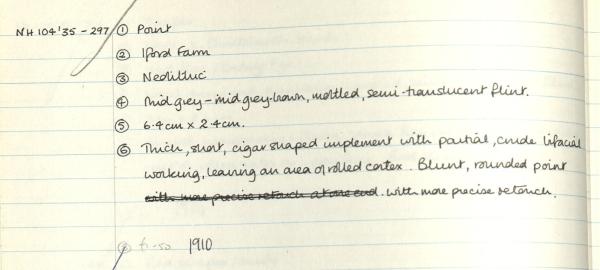 NH 104'35 - 297 ① Point
② Iford Farm
③ Neolithic
④ Mid grey - mid grey-brown, mottled, semi-translucent flint.
⑤ 6.4cm x 2.4cm.
⑥ Thick, short, cigar shaped implement with partial, crude bifacial
working, leaving an area of rolled cortex. Blunt, rounded point
with more precise retouch at one end. with more precise retouch.
1910